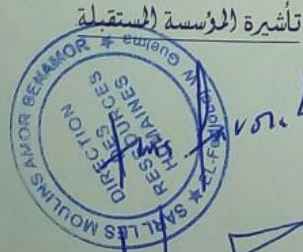 تأشيرة المؤسسة المستقبلة
SARL LES MOULINS AMOR BENAMOR
El-Fedjoudj W. Guelma
DIRECTION
DES
RESSOURCES
HUMAINES